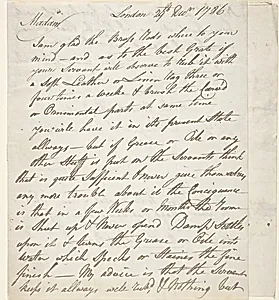 London 29th Decr. 1786
Madam
I am glad the Brass Nails where to your
mind – and as to the best Grate if
your Servant will observe to Rub it with
a soft Leather or Linen Rag three or
four times a Week & brush the Carved
or Ornamental parts at same time
you will have it in its present State
allways – but if Grease or Oile or any
other Stuff is put on the Servants think
that is quite Sufficient & never give themselves
any more trouble about it the Consequence
is that in a few Weeks or Months the Room
is Shut up & never opend Damp Settles
upon it & turns the Grease or Oile into
water which Specks or Staines the fine
finish – My advice is that the Servant
keep it allways well rub'd & Nothing but